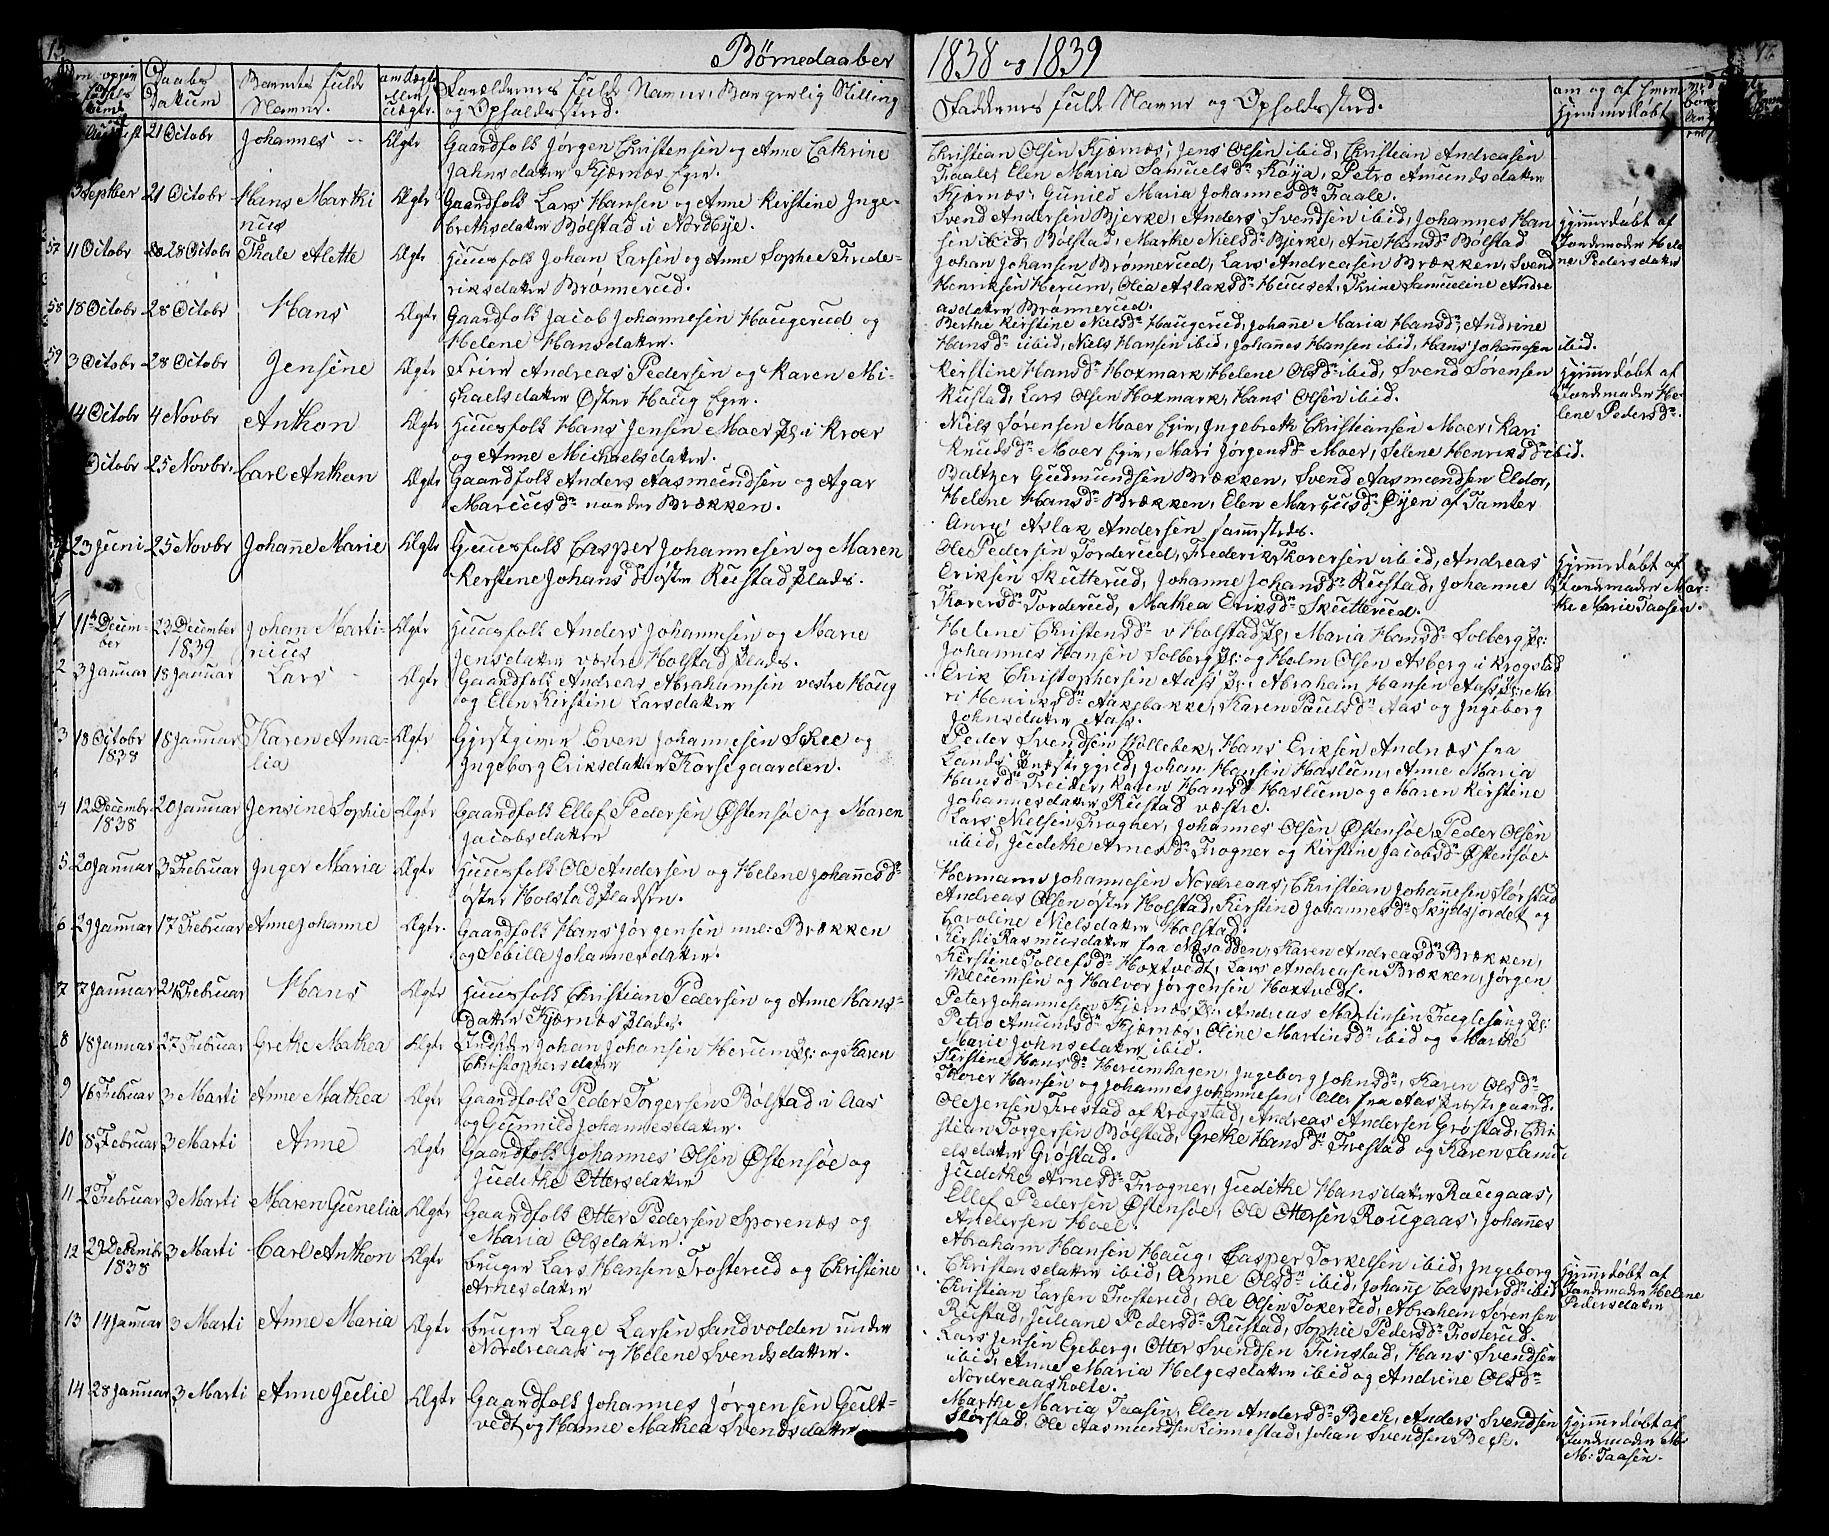 Børnedaaber 1838 og 1839
Daabs Datum
Barnets fulde Navne.
om ægte eller uægte.
Forældrenes fulde Navne, Borgerlig Stilling og Opholdssted.
Faddernes fulde Navne og Opholdssted.
om og af hvem hjemmedøbt
21 Octobr Johannes Ægte Gaardfolk Jørgen Christensen og Anne Cathrine
Jahnsdatter Kjærnæs Eger.
Christian Olsen Kjærnæs, Jens Olsen ibid, Christian Andreasen
Taale, Elen Maria Samuelsdr Køya, Petro Amundsdatter
Kjærnæs, Gunild Maria Johannesdr Taale.
3 Septber 21 Octobr Hans Marthinus Ægte Gaardfolk Lars Hansen og Anne Kirstine Inge-
brethsdatter Bølstad i Nordbye.
Svend Andersen Bjerke, Anders Svendsen ibid, Johannes Han
sen ibid, Bølstad, Marthe Nielsdr Bjerke, Anne Hansdr Bølstad
Hjemmedøbt af
Jordemoder Hele
ne Pedersdatter
57 11 Octobr 28 Octobr Thale Alette Ægte Huusfolk Johan Larsen og Anne Sophie Frede-
riksdatter Brønnerud.
Johan Johansen Brønnerud, Lars Andreasen Brækken, Svend
Henriksen Herum, Olea Aslaksdr Huuset, Thrine Samueline Andre
asdatter Brønnerud.
58 18 Octobr 28 Octobr Hans Ægte Gaardfolk Jacob Johannesen Haugerud og
Helene Hansdatter
Berthe Kirstine Nielsdr Haugerud, Johanne Maria Hansdr, Andrine
Hansdr ibid, Niels Hansen ibid, Johannes Hansen ibid, Hans Johannesen ibid.
59 3 Octobr 28 Octobr Jensine Ægte Andreas Pedersen og Karen Mi-
chaelsdatter Øster Haug Eger.
Kirstine Hansdr Hoxmark, Helene Olsdr ibid, Svend Sørensen
Rustad, Lars Olsen Hoxmark, Hans Olsen ibid.
Hjemmedøbt af
Jordemoder He-
lene Pedersdr.
14 Octobr 4 Novbr Anthon Ægte Huusfolk Hans Jensen Moer Pl: i Kroer
og Anne Michaelsdatter.
Niels Sørensen Moer Eger, Ingebreth Christiansen Moer, Kari
Knudsdr Moer Eger, Mari Jørgensdr Moer, Selene Henriksdr ibid.
Octobr 25 Novbr. Carl Anthon Ægte Gaardfolk Anders Aasmundsen og Agar
Marcusdr nordre Brækken.
Baltzer Gudmundsen Brækken, Svend Aasmundsen Eldor,
Helene Hansdr Brækken, Elen Marcusdr Øyen af Tomter
Anex, Aslak Andersen sammesteds.
23 Juni 25 Novbr Johanne Marie Ægte Huusfolk Casper Johannesen og Maren
Kerstene Johansdr østre Rustad Plads.
Ole Pedersen Torderud, Frederik Thorersen ibid, Andreas
Eriksen Skutterud, Johanne Johansdr Rustad, Johanne
Thorersdr Torderud, Mathea Eriksdr Skutterud.
Hjemmedøbt af
Jordemoder Mar-
the Marie Taasen.
1 11te Decem-
ber 23 December
1839 Johan Marti-
nius Ægte Huusfolk Anders Johannesen og Marie
Jensdatter vestre Holstad Plads.
Helene Christensdr v Holstad Pl: Maria Hansdr Solberg Pl:
Johannes Hansen Solberg Pl: og Holm Olsen Asberg i Krogstad
2 3 Januar 18 Januar Lars Ægte Gaardfolk Andreas Abrahamsen vestre Haug
og Elen Kirstine Larsdatter
Erik Christophersen Aass Pl: Abraham Hansen Aass Pl: Ma
ri Henriksdr Aakebakke, Karen Paulsdr Aas og Ingeborg
Johnsdatter Aass.
3 18 Octobr
1838 18 Januar Karen Ama-
lia Ægte Gjestgiver Even Johannesen Skee og
Ingeborg Eriksdatter Korsegaarden.
Peder Svendsen Hollebek, Hans Eriksen Andnæs fra
Lands Præstegjeld, Johan Hansen Haslum, Anne Maria
Hansdr Treider, Karen Hansdr Haslum og Maren Kirstine
Johannesdatter Rustad væstre.
4 12 Decembr
1838 20 Januar Jensine Sophie Ægte Gaardfolk Ellef Pedersen Østensøe og Maren
Jacobsdatter
Lars Nielsen Frogner, Johannes Olsen Østensøe, Peder Olsen
ibid, Judithe Arnesdr Frogner og Kirstine Jacobsdr Østensøe
5 20 Januar 3 Februar Inger Maria Ægte Huusfolk Ole Andersen og Helene Johannesdr
øster Holstad Pladsen.
Hermann Johannesen Nordreaas, Christian Johannesen Slørstad
Andreas Olsen øster Holstad, Kirstine Johannesdr Skydsjordet og
Caroline Nielsdatter Holstad.
6 29 Januar 17 Februar Anne Johanne Ægte. Gaardfolk Hans Jørgensen Brækken
og Sebille Johannesdatter.
Kirsti Rasmusdatter fra Næsodden, Karen Andreasdr Brækken,
Kirstine Tollefsdr Hoxtvedt, Lars Andreasen Brækken, Jørgen
Meeumsen og Halvor Jørgensen Hoxtvedt.
7 7 Januar 24 Februar Hans Ægte Huusfolk Christian Pedersen og Anne Hans-
datter Kjærnæs Plads.
Peter Johannesen Kjærnæs Pl: Andreas Martinsen Fuglesang Pl:
Petro Amundsdr Kjærnæs, Oline Martinsdr ibid og Marthe
Marie Johnsdatter ibid.
8 18 Januar 27 Februar Grethe Mathea Ægte Inderster Johan Johansen Herum Pl: og Karen
Christophersdatter
Kirstene Hansdr Herumhagen, Ingeborg Johnsdr, Karen Olsdr
Thorer Hansen og Johannes Johannesen, alle fra Aas Præstegaard.
9 16 Februar 3 Marti Anne Mathea Ægte Gaardfolk Peder Torgersen Bølstad i Aas
og Gunnild Johannesdatter.
Ole Jensen Frestad af Krogstad, Andreas Andersen Grøstad, Chri
stian Torgersen Bølstad, Grethe Hansdr Frestad og Karen Samu
elsdatter Grøstad.
10 8 Februar 3 Marti Anne Ægte Gaardfolk Johannes Olsen Østensøe og
Judithe Ottersdatter
Judithe Arnesdr Frogner, Judithe Hansdatter Rougaas,
Ellef Pedersen Østensøe, Ole Ottersen Rougaas, Johannes
Andersen Hoel.
11 2 Februar 3 Marti Maren Gunelia Ægte Gaardfolk Otter Pedersen Sporenæs og
Maria Olsdatter.
Abraham Hansen Haug, Casper Torkelsen ibid, Ingeborg
Christensdatter ibid, Anne Olsdr ibid, Johanne Caspersdr ibid
12 29 Decembr
1838 3 Marti Carl Anthon Ægte bruger Lars Hansen Trosterud og Christine
Arnesdatter
Christian Larsen Trosterud, Ole Olsen Tokerud, Abraham Sørensen
Rustad, Juliane Pedersdr Rustad, Sophie Pedersdr Trosterud.
Hjemmedøbt af
Jordemoder Helene
Pedersdatter
13 14 Januar 3 Marti Anne Maria Ægte bruger Lage Larsen Sandvolden under
Nordreaas og Helene Svendsdatter.
Lars Jensen Egeberg, Otter Svendsen Finstad, Hans Svendsen
ibid, Anne Maria Helgesdatter ibid og Andrine Olsdr
Nordreaasholte.
14 28 Januar 3 Marti Anne Julie Ægte Gaardfolk Johannes Jørgensen Gult-
vedt og Hanne Mathea Svendsdatter
Marthe Maria Taasen, Elen Andersdr Bech, Anders Svendsen
Slørstad, Ole Aasmundsen Kinnestad, Johan Svendsen Bech.
Hjemmedøbt af
Jordemoder M:
M: Taasen.